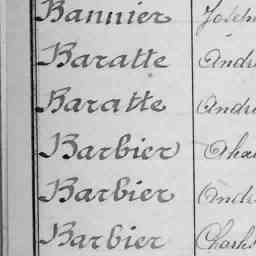 Bannier Joseph
Baratte André
Baratte André
Barbier Cha
Barbier André
Barbier Charles